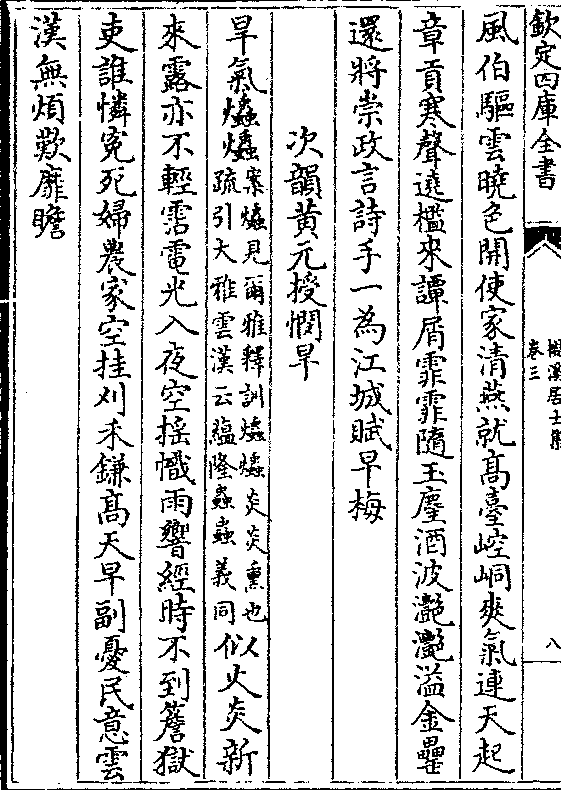 欽定四庫全書
檆溪居士集
卷三
八
風伯驅雲曉色開使家清燕就髙臺崆峒爽氣連天起
章貢寒聲遶檻來譚屑霏霏隨玉麈酒波灔灔溢金罍
還將崇政言詩手一為江城賦早梅
次韻黄元授憫旱
旱氣爞爞案爞見爾雅釋訓爞爞炎炎熏也疏引大雅雲漢云藴隆蟲蟲義同似火炎新
來露亦不輕霑電光入夜空揺幟雨響經時不到簷獄
吏誰憐寃死婦農家空挂刈禾鎌髙天早副憂民意雲
漢無煩歎靡瞻